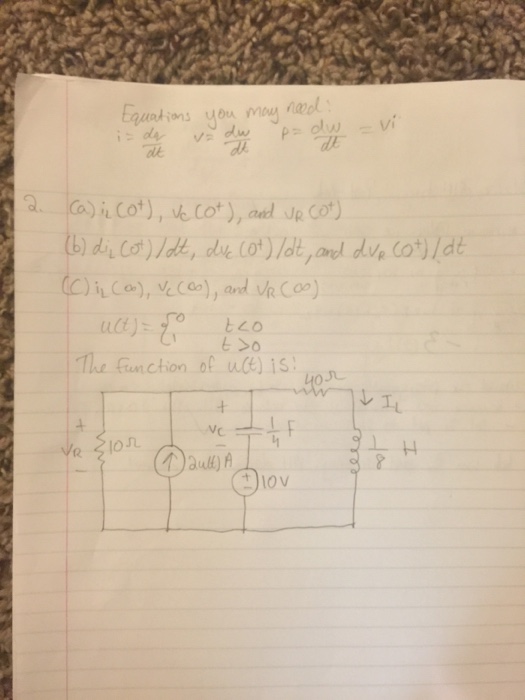 Equations you may need:
i = dq/dt   v = dw/dt   P = dw/dt = vi
2. (a) iL(0⁺), vc(0⁺), and vR(0⁺)
(b) diL(0⁺)/dt, dvc(0⁺)/dt, and dvR(0⁺)/dt
(C) iL(∞), vc(∞), and vR(∞)
u(t) = { 0   t<0
1   t>0
The function of u(t) is:
40Ω
+ VR −
10Ω
2u(t) A
+ vc −
1/4 F
+ −
10V
↓ IL
1/8 H